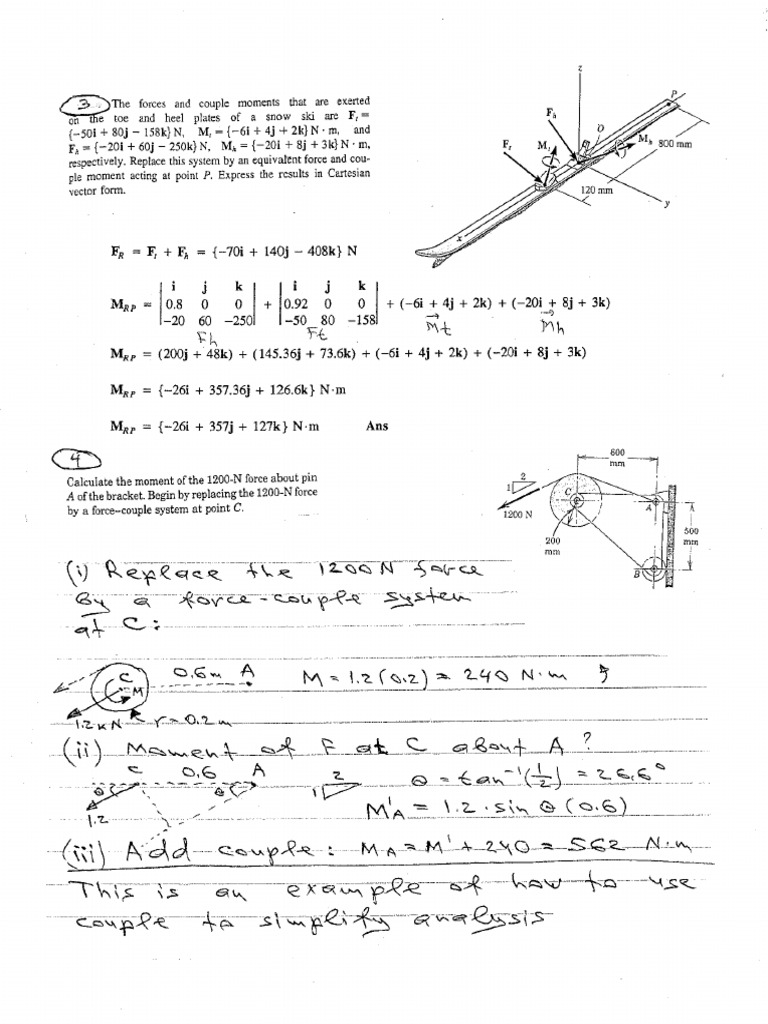 3. The forces and couple moments that are exerted
on the toe and heel plates of a snow ski are Fₜ =
{−50i + 80j − 158k} N, Mₜ = {−6i + 4j + 2k} N · m, and
Fₕ = {−20i + 60j − 250k} N, Mₕ = {−20i + 8j + 3k} N · m,
respectively. Replace this system by an equivalent force and cou-
ple moment acting at point P. Express the results in Cartesian
vector form.
z
P
Fₕ
O
Fₜ
Mₜ
Mₕ
800 mm
120 mm
y
x
F_R = Fₜ + Fₕ = {−70i + 140j − 408k} N
M_RP = | i j k | + | i j k | + (−6i + 4j + 2k) + (−20i + 8j + 3k)
| 0.8 0 0 | | 0.92 0 0 |
| −20 60 −250 | | −50 80 −158 |
Fh Ft Mt Mh
M_RP = (200j + 48k) + (145.36j + 73.6k) + (−6i + 4j + 2k) + (−20i + 8j + 3k)
M_RP = {−26i + 357.36j + 126.6k} N·m
M_RP = {−26i + 357j + 127k} N·m Ans
4
Calculate the moment of the 1200-N force about pin
A of the bracket. Begin by replacing the 1200-N force
by a force–couple system at point C.
600
mm
2
1
C
A
1200 N
200
mm
500
mm
B
(i) Replace the 1200N force
by a force-couple system
at C:
C 0.6m A M = 1.2(0.2) = 240 N·m
M
1.2kN r = 0.2m
(ii) Moment of F at C about A?
C 0.6 A 2 θ = tan⁻¹(1/2) = 26.6°
θ θ 1
1.2 M'A = 1.2 · sin θ (0.6)
(iii) Add couple: MA = M' + 240 = 562 N·m
This is an example of how to use
couple to simplify analysis